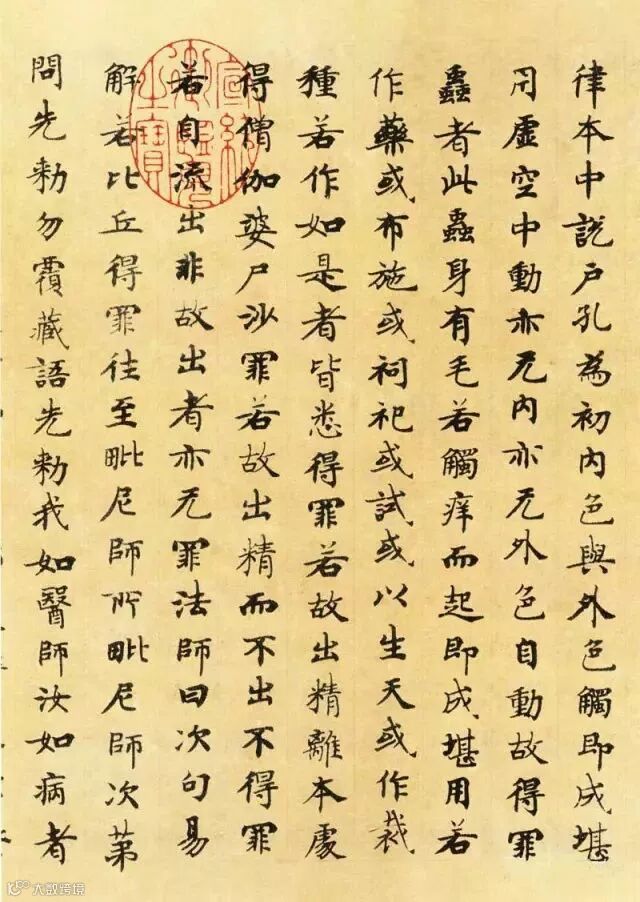 律本中說户孔為初內色與外色觸即成堪
用虛空中動亦无內亦无外色自動故得罪
蟲者此蟲身有毛若觸痒而起即成堪用若
作藥或布施或祠祀或試或以生天或作栽
種若作如是者皆悉得罪若故出精離本處
得僧伽婆尸沙罪若故出精而不出不得罪
若自流出非故出者亦无罪法師曰次句易
解若比丘得罪往至毗尼師所毗尼師次第
問先勑勿覆藏語先勑我如醫師汝如病者
大数跨境